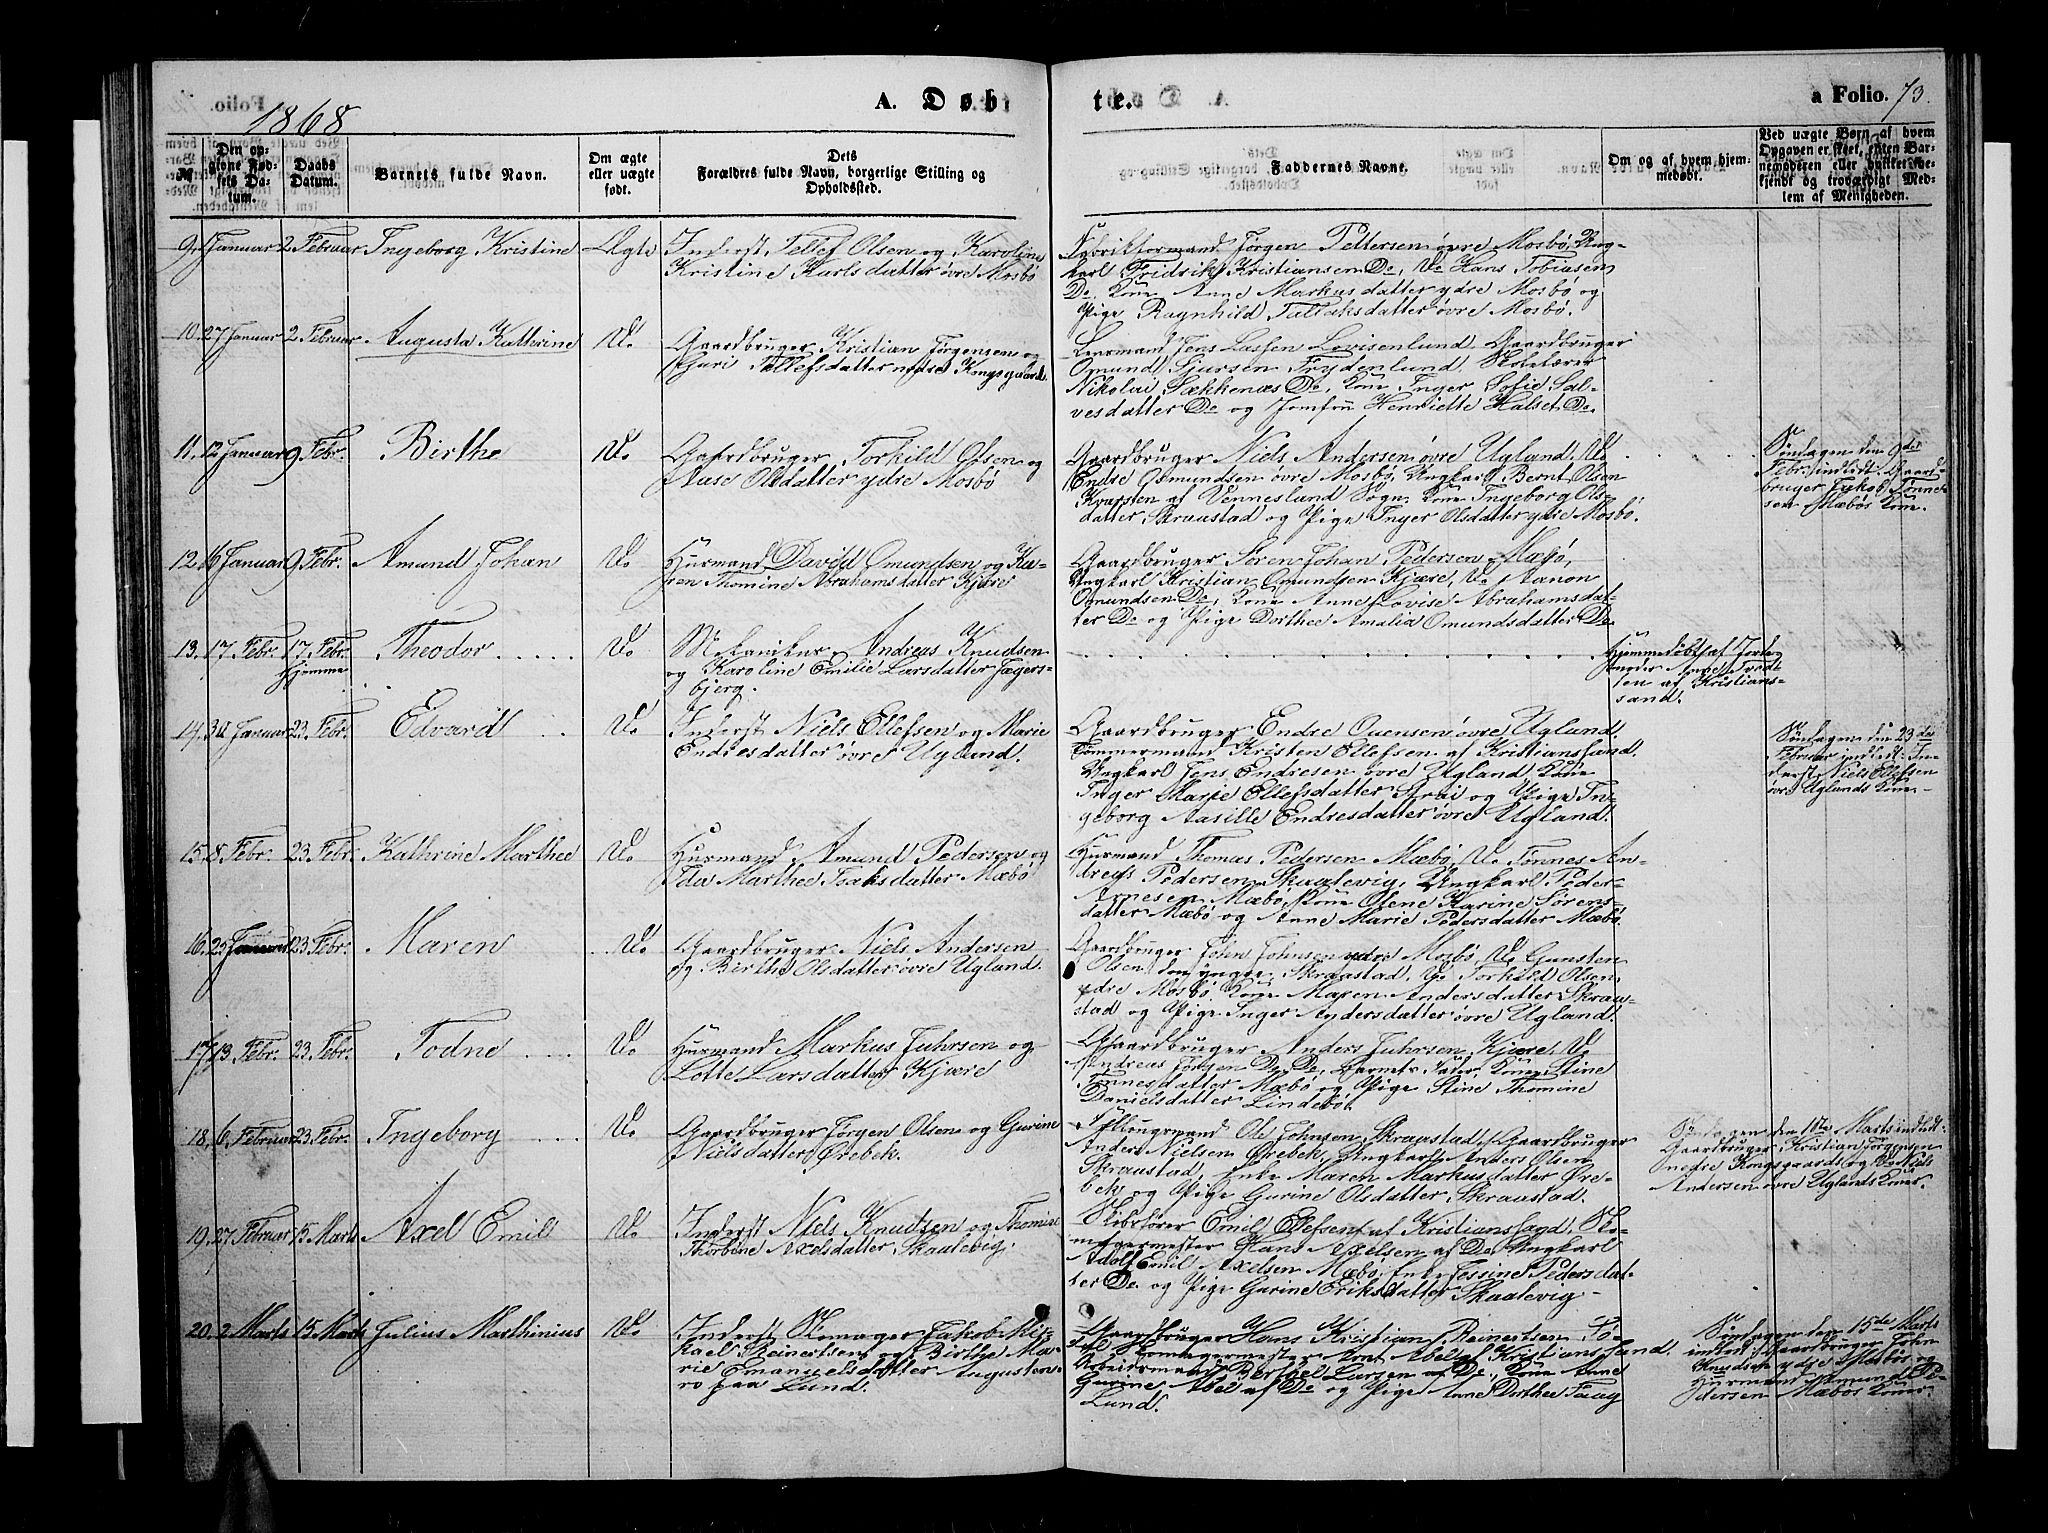 1868
A. Døb
te.
a Folio. 73.
№
Den opgivne Fødsels Datum.
Daabs Datum.
Barnets fulde Navn.
Om ægte eller uægte født.
Dets Forældres fulde Navn, borgerlige Stilling og Opholdssted.
Faddernes Navne.
Om og af hvem hjemmedøbt.
Ved uægte Børn af hvem Opgaven er skeet, enten Barnemoderen eller hvilket bekjendt og troværdigt Medlem af Menigheden.
9. Januar 2 Februar Ingeborg Kristine Ægte
Inderst Tellef Olsen og Karoline
Kristine Karlsdatter øvre Mosbø
Fabrikformand Jørgen Pettersen øvre Mosbø, Ung-
karl Fredrik Kristiansen Do, Do Hans Tobiasen
Do, Kone Anne Markusdatter ydre Mosbø og
Pige Ragnhild Tallaksdatter øvre Mosbø.
10. 27 Januar 2 Februar Augusta Kathrine Do
Gaardbruger Kristian Jørgensen og
Guri Tellefsdatter nedre Kongsgaard
Lensmand Jens Lassen Lovisenlund, Gaardbruger
Omund Sjursen Frydenlund, Skolelærer
Nikolai Sækkenæs Do, Kone Inger Sofie Sal-
vesdatter Do og Jomfru Henriette Halset Do.
11. 12 Januar 9 Febr. Birthe Do
Gaardbruger Torkild Olsen og
Aase Olsdatter ydre Mosbø
Gaardbruger Niels Andersen øvre Ugland, Do
Endre Osmundsen øvre Mosbø, Ungkarl Bernt Olsen
Kvarsten af Venneslund Sogn, Kone Ingeborg Ols-
datter Skraastad og Pige Inger Olsdatter ydre Mosbø.
Søndagen den 9de
Febr. indledt: Gaard-
bruger Jakob Tønne-
sen Mæbøs Kone.
12. 16 Januar 9 Febr. Amund Johan Do
Husmand David Omundsen og Ka-
ren Thomine Abrahamsdatter Kjære
Gaardbruger Søren Johan Pedersen Mæbø,
Ungkarl Kristian Omundsen Kjære, Do Aanon
Omundsen Do, Kone Anne Lovise Abrahamsdat-
ter Do og Pige Dorthea Amalia Omundsdatter Do
13. 17 Febr. 17 Febr. Theodor Do
Hjemme
Mekaniker Andreas Knudsen
og Karoline Emilie Larsdatter Jægers-
bjerg.
Hjemmedøbt af Jorde-
moder Anne Tredt-
ten af Kristians-
sand.
14. 30 Januar 23. Febr. Edvard Do
Inderst Niels Ellefsen og Marie
Endresdatter øvre Ugland.
Gaardbruger Endre Ouensen øvre Ugland.
Tømmermand Kristen Ellefsen af Kristianssand.
Ungkarl Jens Endresen øvre Ugland, Kone
Inger Marie Ellefsdatter Strai og Pige In-
geborg Aasille Endresdatter øvre Ugland.
Søndagen den 23de
Februar indledt: In-
derst Niels Ellefsen
øvre Uglands Kone
15. 8 Febr. 23 Febr. Kathrine Marthee Do
Husmand Amund Pedersen og
Ida Marthee Isaksdatter Mæbø
Husmand Thomas Pedersen Mæbø, Do Tønnes An-
dreas Pedersen Skaalevig, Ungkarl Peder
Arnesen Mæbø, Kone Olene Karine Sørens-
datter Mæbø og Anne Marie Pedersdatter Mæbø.
16. 25 Januar 23 Febr. Maren Do
Gaardbruger Niels Andersen
og Birthe Olsdatter øvre Ugland.
Gaardbruger John Johnsen ydre Mosbø, Do Gunsten
Olsen den yngre Skraastad, Do Torkild Olsen
ydre Mosbø, Kone Maren Andersdatter Skraa-
stad og Pige Inger Andersdatter øvre Ugland.
17. 13. Febr. 23. Febr. Todne Do
Husmand Markus Juhrsen og
Lotte Larsdatter Kjære
Gaardbruger Anders Juhrsen Kjære, Do
Andreas Jørgen Do Do, Barnets Fader, Kone Stine
Tønnesdatter Mæbø og Pige Stine Thomine
Danielsdatter Lindebø.
18. 6 Februar 23 Febr. Ingeborg Do
Gaardbruger Jørgen Olsen og Gurine
Nielsdatter Ørebek.
Føllougsmand Ole Johnsen Skraastad, Gaardbruger
Anders Nielsen Ørebek, Ungkarl Anders Olsen
Skraastad, Enke Maren Markusdatter Øre-
bek og Pige Gurine Olsdatter Skraastad.
Søndagen den 1ste Marts indledt:
Gaardbruger Kristian Jørgensen
nedre Kongsgaards og Do Niels
Andersen øvre Uglands Koner.
19. 27 Februar 15 Marts Axel Emil Do
Inderst Niels Knudsen og Thomine
Thorbine Axelsdatter Skaalevig.
Skibsfører Emil Ellefsen af Kristianssand, Sko-
magermester Hans Axelsen af Do, Ungkarl
Adolf Emil Axelsen Mæbø, Enke Jessine Pedersdat-
ter Do og Pige Gurine Eriksdatter Skaalevig
20. 2 Marts 15 Marts Julius Marthinius Do
Inderst Skomager Jakob Mi-
kael Reinertsen og Birthe Ma-
rie Emanuelsdatter Augustero
paa Lund.
Gaardbruger Hans Kristian Reinertsen
Skomagermester Knut Abel af Kristianssand.
Arbeidsmand Berthel Larsen af Do, Kone Anne
Gurine Abel af Do og Pige Anne Dorthea Faag
Lund.
Søndagen den 15de Marts
indledt: Gaardbruger John
Knudsen ydre Mosbøs og
Husmand Amund Pe-
dersen Mæbøs Koner.